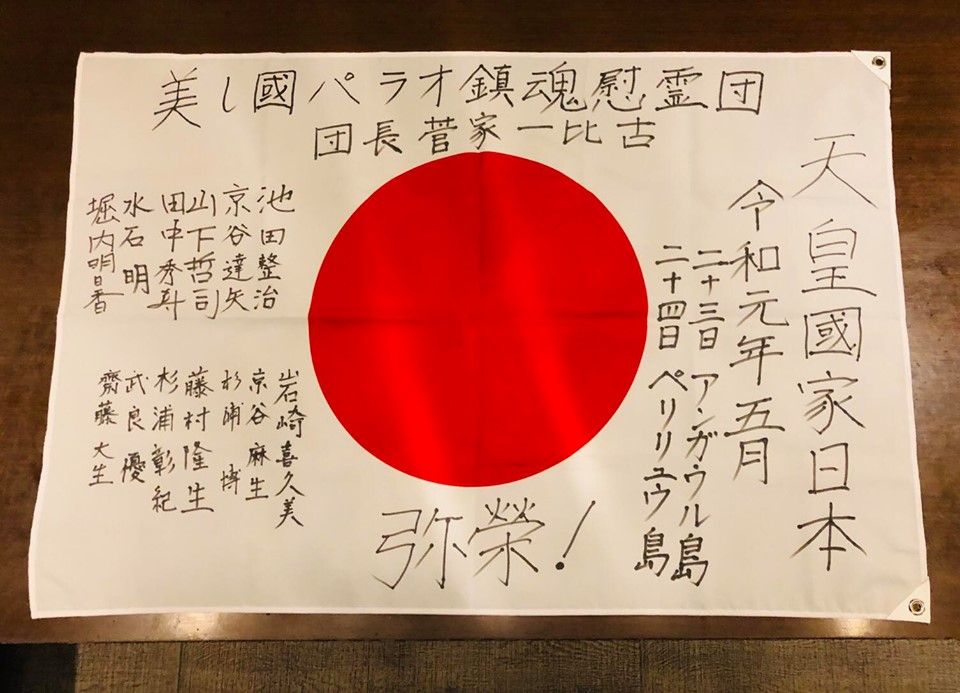 美し國パラオ鎮魂慰霊団
団長菅家一比古
天皇國家日本
令和元年五月
二十三日 アンガウル島
二十四日 ペリリュウ島
池田整治
京谷達矢
山下哲司
田中秀寿
水石明
堀内明日香
岩崎喜久美
京谷麻生
杉浦博
藤村隆生
杉浦彰紀
武良優
齋藤大生
弥榮!